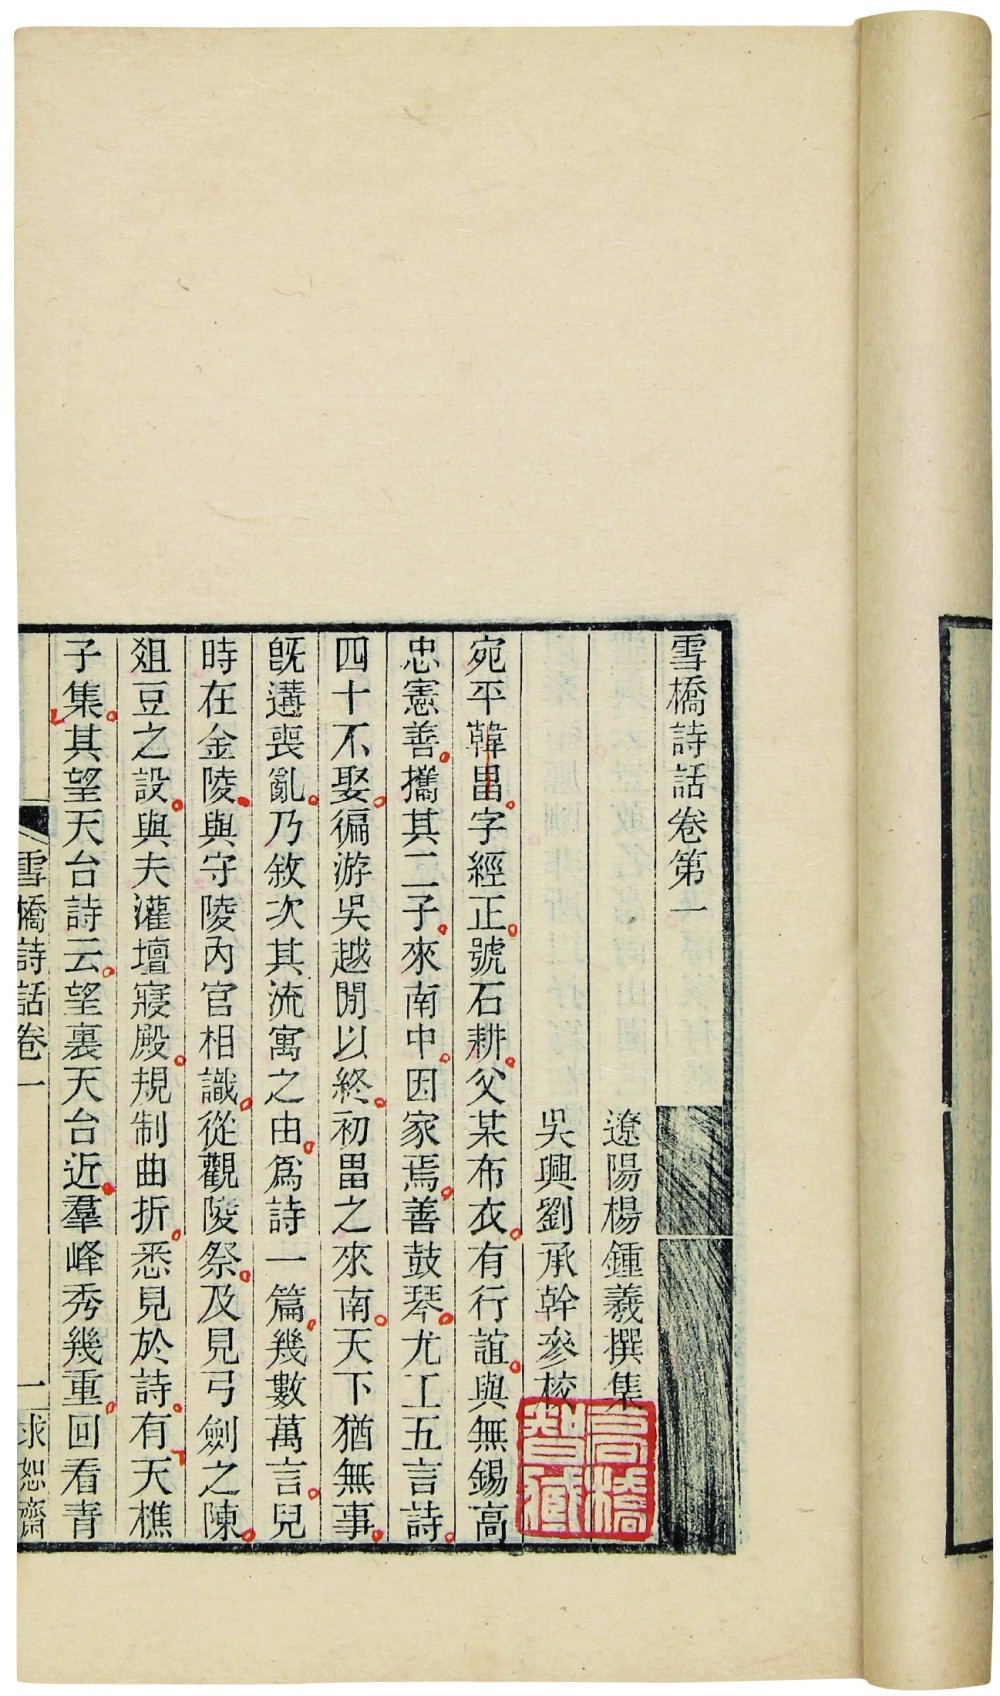 雪橋詩話卷第一
遼陽楊鍾羲撰集
吳興劉承幹參校
宛平韓畕字經正號石耕父某布衣有行誼與無錫高
忠憲善攜其二子來南中因家焉善鼓琴尤工五言詩
四十不娶徧游吳越閒以終初畕之來南天下猶無事
旣遘喪亂乃敘次其流寓之由爲詩一篇幾數萬言兒
時在金陵與守陵內官相識從觀陵祭及見弓劍之陳
俎豆之設與夫灌壇寢殿規制曲折悉見於詩有天樵
子集其望天台詩云望裏天台近羣峰秀幾重回看青
雪橋詩話卷一
一
求恕齋
高橋
智藏